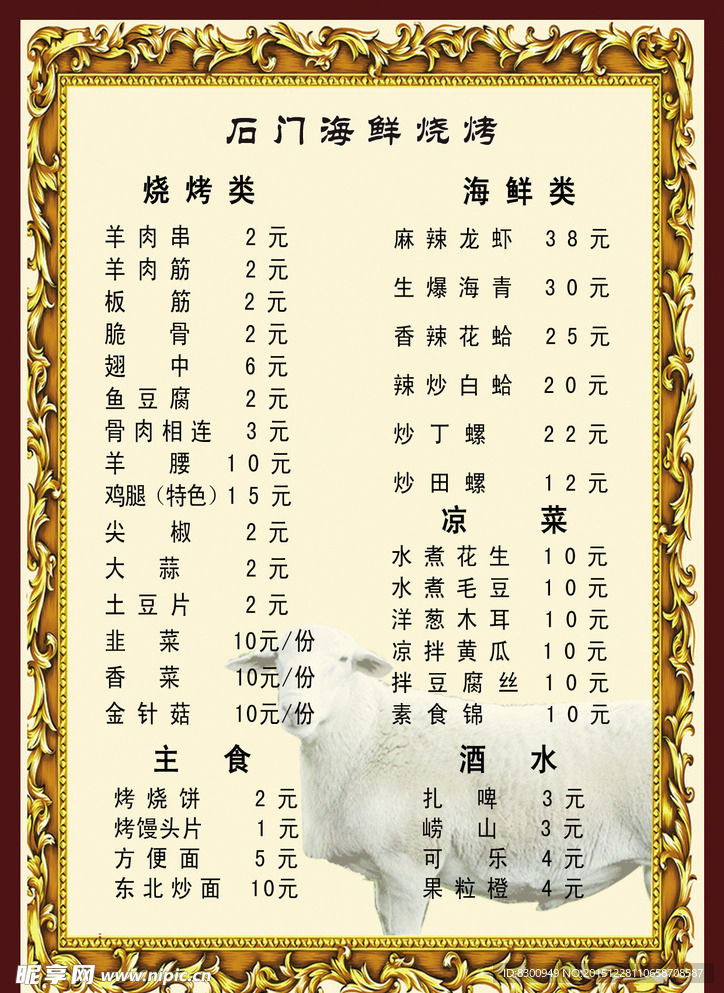 石门海鲜烧烤
烧烤类
羊肉串 2元
羊肉筋 2元
板筋 2元
脆骨 2元
翅中 6元
鱼豆腐 2元
骨肉相连 3元
羊腰 10元
鸡腿（特色）15元
尖椒 2元
大蒜 2元
土豆片 2元
韭菜 10元/份
香菜 10元/份
金针菇 10元/份
主食
烤烧饼 2元
烤馒头片 1元
方便面 5元
东北炒面 10元
海鲜类
麻辣龙虾 38元
生爆海青 30元
香辣花蛤 25元
辣炒白蛤 20元
炒丁螺 22元
炒田螺 12元
凉菜
水煮花生 10元
水煮毛豆 10元
洋葱木耳 10元
凉拌黄瓜 10元
拌豆腐丝 10元
素食锦 10元
酒水
扎啤 3元
崂山 3元
可乐 4元
果粒橙 4元
昵享网 www.nipic.cn
ID:8300949 NO:20151228110658708587